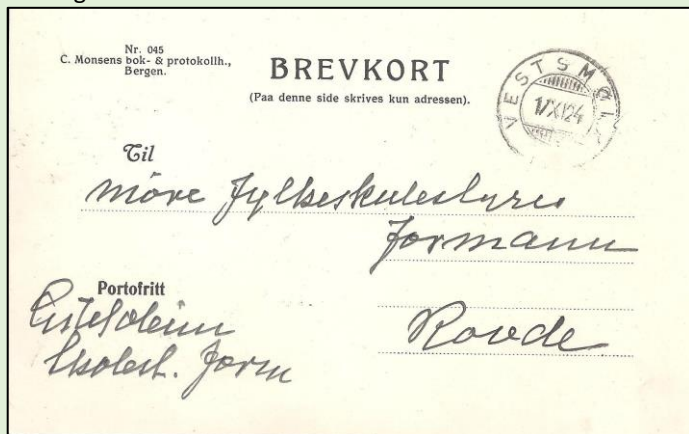 Nr. 045
C. Monsens bok- & protokollh.,
Bergen.
BREVKORT
(Paa denne side skrives kun adressen).
VESTSMØL
17XI24
Til
Møre fylkesskulestyres
formann
Portofritt
Rovde
Skolest. form